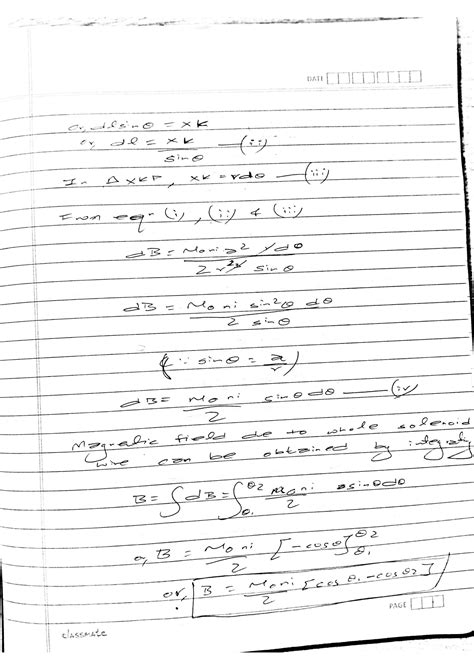 DATE
or, dl sinθ = XK
or, dl = XK / sinθ —(ii)
In Δ XKP, XK = rdθ —(iii)
From eqn (i), (ii) & (iii)
dB = μ₀ni a² r dθ / 2 r³ sinθ
dB = μ₀ni sin²θ dθ / 2 sinθ
(∵ sinθ = a/r)
dB = μ₀ni / 2 sinθ dθ —(iv)
Magnetic field de to whole solenoid
wire can be obtained by
B = ∫dB = ∫θ₁^θ₂ μ₀ni / 2 sinθdθ
or, B = μ₀ni / 2 [-cosθ]θ₁^θ₂
or, B = μ₀ni / 2 [cosθ₁ - cosθ₂]
PAGE
classmate